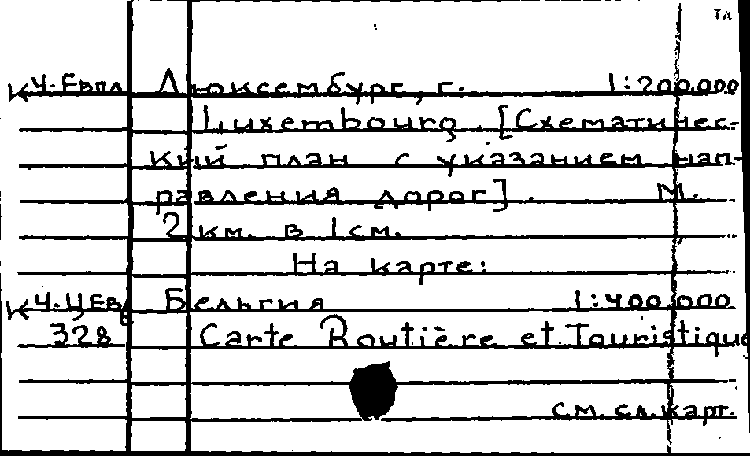 Тл
К Ч-Евпл Люксембург, г. 1:200.000
Luxembourg. [Схематичес-
кий план с указанием нап-
равления дорог]. М.
2 км. в 1 см.
На карте:
К Ч-ЦЕв Бельгия 1:400.000
328 Carte Routière et Touristique
см. сл. карт.